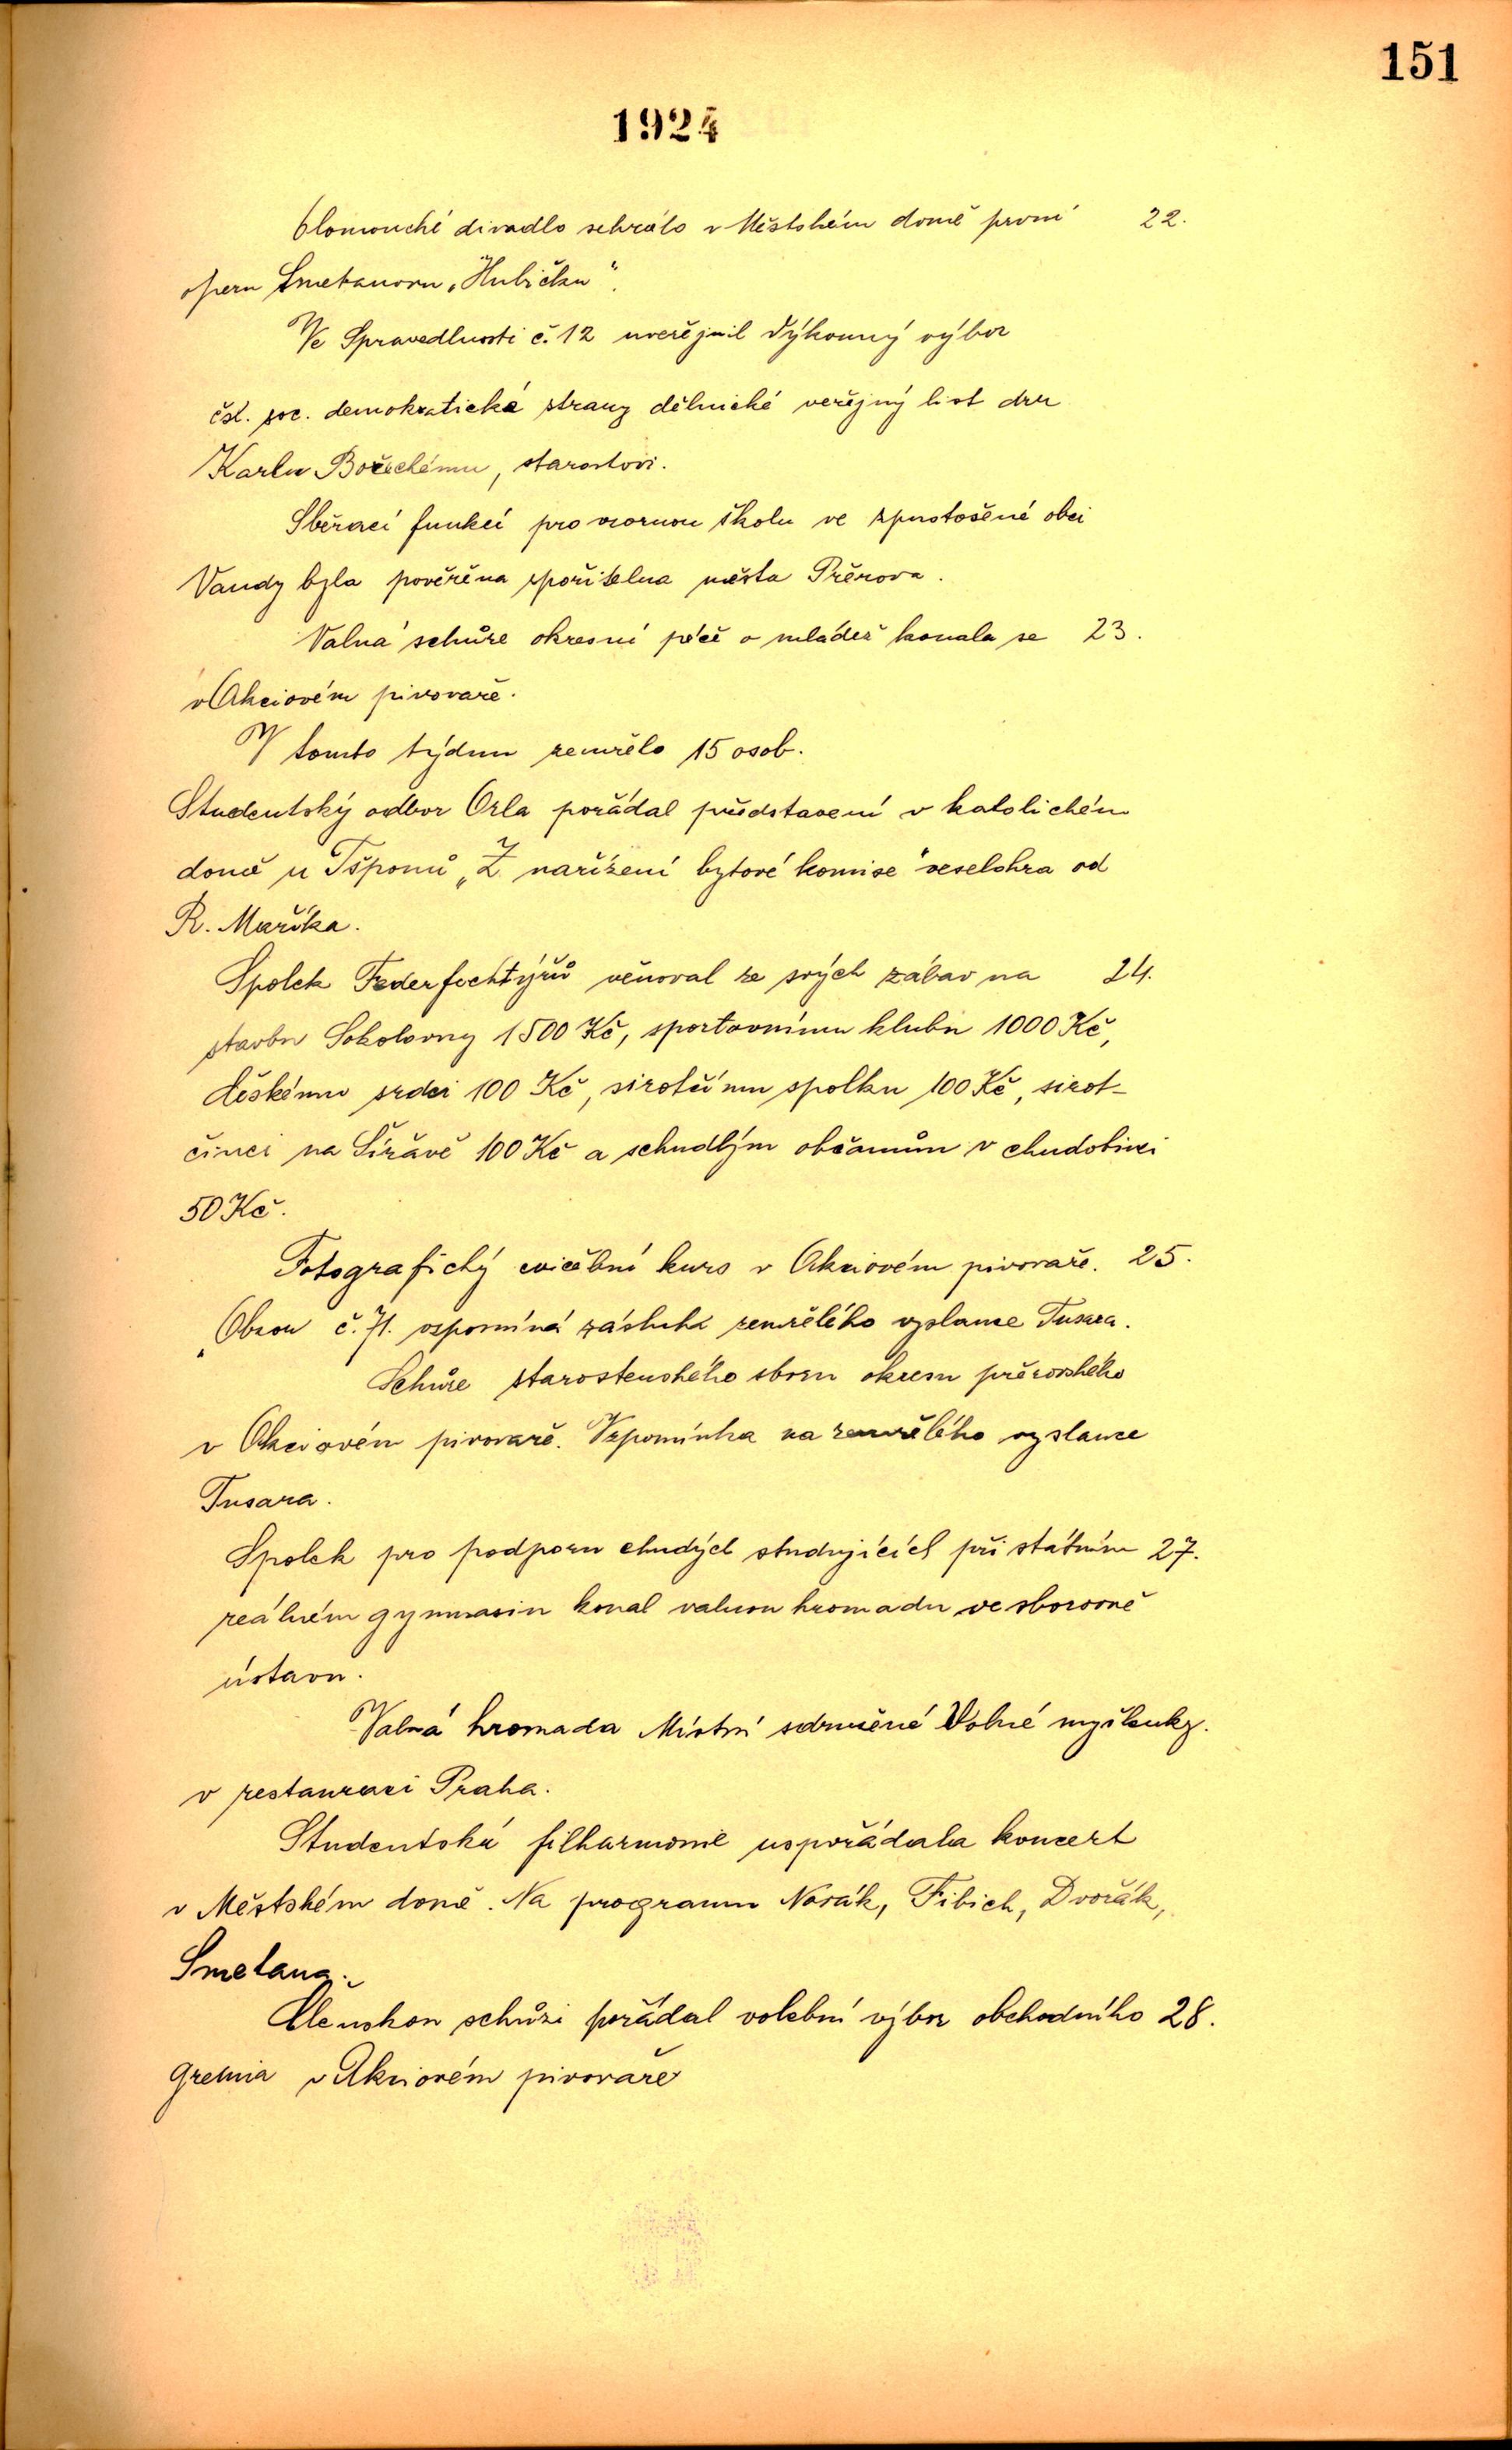 151
1924
Olomoucké divadlo sehrálo v Městském domě první 22.
operu Smetanovu „Hubičku“.
Ve Spravedlnosti č. 12 uveřejnil Výkonný výbor
čsl. soc. demokratické strany dělnické veřejný list dru
Karlu Božeckému, starostovi.
Sběrací funkcí pro vzornou školu ve zpustošené obci
Vandy byla pověřena spořitelna města Přerova.
Valná schůze okresní péče o mládež konala se 23.
v Akciovém pivovaře.
V tomto týdnu zemřelo 15 osob.
Studentský odbor Orla pořádal představení v katolickém
domě u Tšponů „Z nařízení bytové komise“ veselohra od
R. Maříka.
Spolek Federfechtýřů věnoval ze svých zábav na 24.
stavbu Sokolovny 1500 Kč, sportovnímu klubu 1000 Kč,
Českému srdci 100 Kč, sirotčímu spolku 100 Kč, sirot-
činci na Šířavě 100 Kč a schudlým občanům v chudobinci
50 Kč.
Fotografický cvičební kurs v Akciovém pivovaře. 25.
„Obzor č. 71. vzpomíná zásluhu zemřelého vyslance Tusara.
Schůze starostenského sboru okresu přerovského
v Akciovém pivovaře. Vzpomínka na zemřelého vyslance
Tusara.
Spolek pro podporu chudých studujících při státním 27.
reálném gymnasiu konal valnou hromadu ve sborovně
ústavu.
Valná hromada Místní sdružené Volné myšlenky.
v restauraci Praha.
Studentská filharmonie uspořádala koncert
v Městském domě. Na programu Novák, Fibich, Dvořák,
Smetana.
Členskou schůzi pořádal volební výbor obchodního 28.
gremia v Akciovém pivovaře